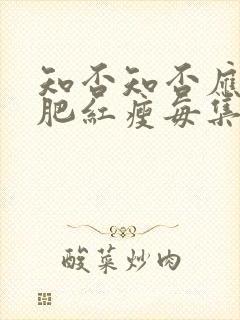 知否知否应
肥红瘦每集
酸菜炒肉